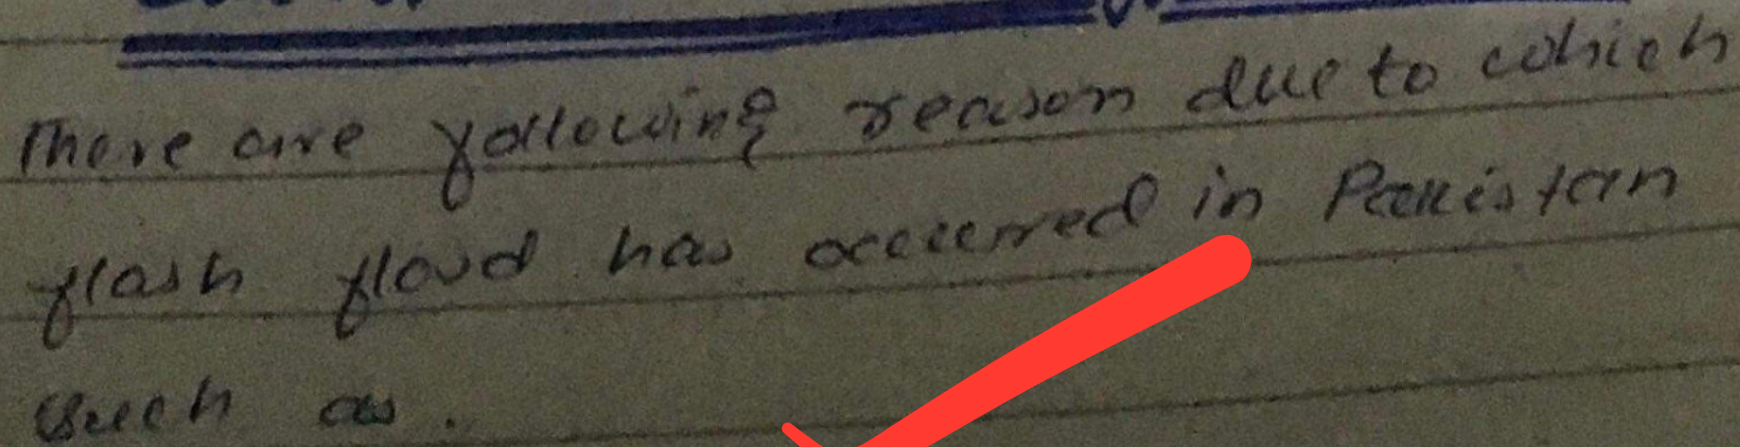 There are following reason due to which
flash flood has occurred in Pakistan
such as.